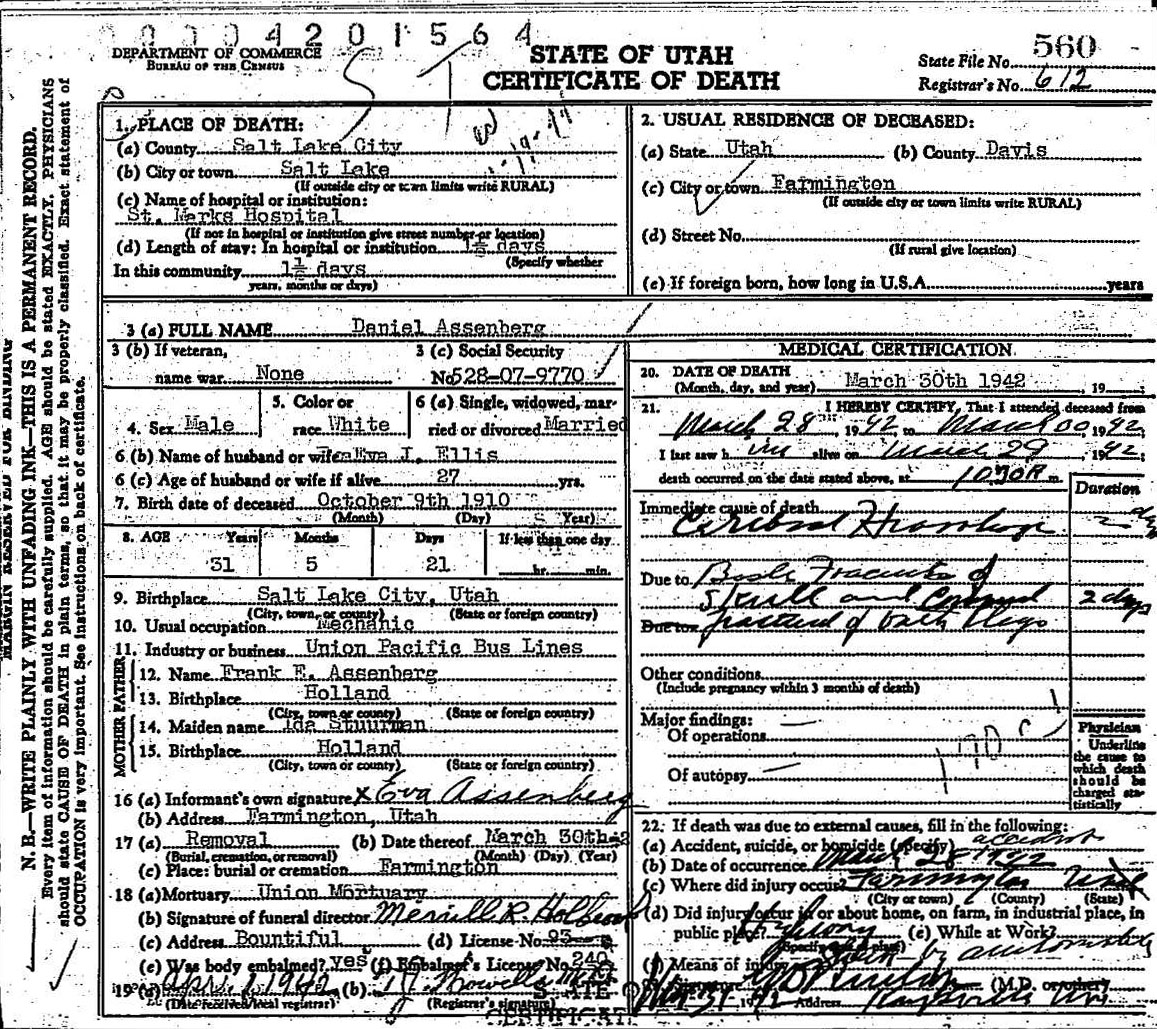 00004201564
DEPARTMENT OF COMMERCE
BUREAU OF THE CENSUS
STATE OF UTAH
CERTIFICATE OF DEATH
State File No. 560
Registrar's No. 612
MARGIN RESERVED FOR BINDING
N. B.—WRITE PLAINLY WITH UNFADING INK—THIS IS A PERMANENT RECORD.
Every item of information should be carefully supplied. AGE should be stated EXACTLY. PHYSICIANS
should state CAUSE OF DEATH in plain terms, so that it may be properly classified. Exact statement of
OCCUPATION is very important. See instructions on back of certificate.
1. PLACE OF DEATH:
(a) County Salt Lake City
(b) City or town Salt Lake
(If outside city or town limits write RURAL)
(c) Name of hospital or institution:
St. Marks Hospital
(If not in hospital or institution give street number or location)
(d) Length of stay: In hospital or institution 1½ days
(Specify whether
In this community 1½ days
years, months or days)
2. USUAL RESIDENCE OF DECEASED:
(a) State Utah (b) County Davis
(c) City or town Farmington
(If outside city or town limits write RURAL)
(d) Street No.
(If rural give location)
(e) If foreign born, how long in U.S.A. years
3 (a) FULL NAME Daniel Assenberg
3 (b) If veteran, name war None
3 (c) Social Security No 528-07-9770
4. Sex Male
5. Color or race White
6 (a) Single, widowed, married or divorced Married
6 (b) Name of husband or wife Eva I. Ellis
6 (c) Age of husband or wife if alive 27 yrs.
7. Birth date of deceased October 9th 1910
(Month) (Day) (Year)
8. AGE Years Months Days If less than one day
31 5 21 hr. min.
9. Birthplace Salt Lake City, Utah
(City, town, or county) (State or foreign country)
10. Usual occupation Mechanic
11. Industry or business Union Pacific Bus Lines
FATHER
12. Name Frank E. Assenberg
13. Birthplace Holland
(City, town or county) (State or foreign country)
MOTHER
14. Maiden name Ida Stuurman
15. Birthplace Holland
(City, town or county) (State or foreign country)
16 (a) Informant's own signature x Eva Assenberg
(b) Address Farmington, Utah
17 (a) Removal (b) Date thereof March 30th-2
(Burial, cremation, or removal) (Month) (Day) (Year)
(c) Place: burial or cremation Farmington
18 (a) Mortuary Union Mortuary
(b) Signature of funeral director Merrill R. Holbrook
(c) Address Bountiful (d) License No. 93
(e) Was body embalmed? yes (f) Embalmer's License No. 240
19 (a) (b)
(Date received local registrar) (Registrar's signature)
MEDICAL CERTIFICATION
20. DATE OF DEATH
(Month, day, and year) March 30th 1942, 19
21. I HEREBY CERTIFY, That I attended deceased from
March 28, 1942, to March 30, 1942,
I last saw him alive on March 29 1942;
death occurred on the date stated above, at m.
Duration
Immediate cause of death
Cerebral Hemorrhage
Due to Basle Fracture of
Skull and Compound 2 days
Due to fracture of both legs
Other conditions
(Include pregnancy within 3 months of death)
Major findings:
Of operations
Of autopsy
170c
Physician
Underline the cause to which death should be charged statistically
22. If death was due to external causes, fill in the following:
(a) Accident, suicide, or homicide (specify) accident
(b) Date of occurrence March 28 1942
(c) Where did injury occur? Farmington Utah
(City or town) (County) (State)
(d) Did injury occur in or about home, on farm, in industrial place, in
public place? Highway (e) While at Work?
(Specify type of place)
(f) Means of injury Struck by automobile
Signature (M.D. or other)
Mar 31 1942 Address Kaysville